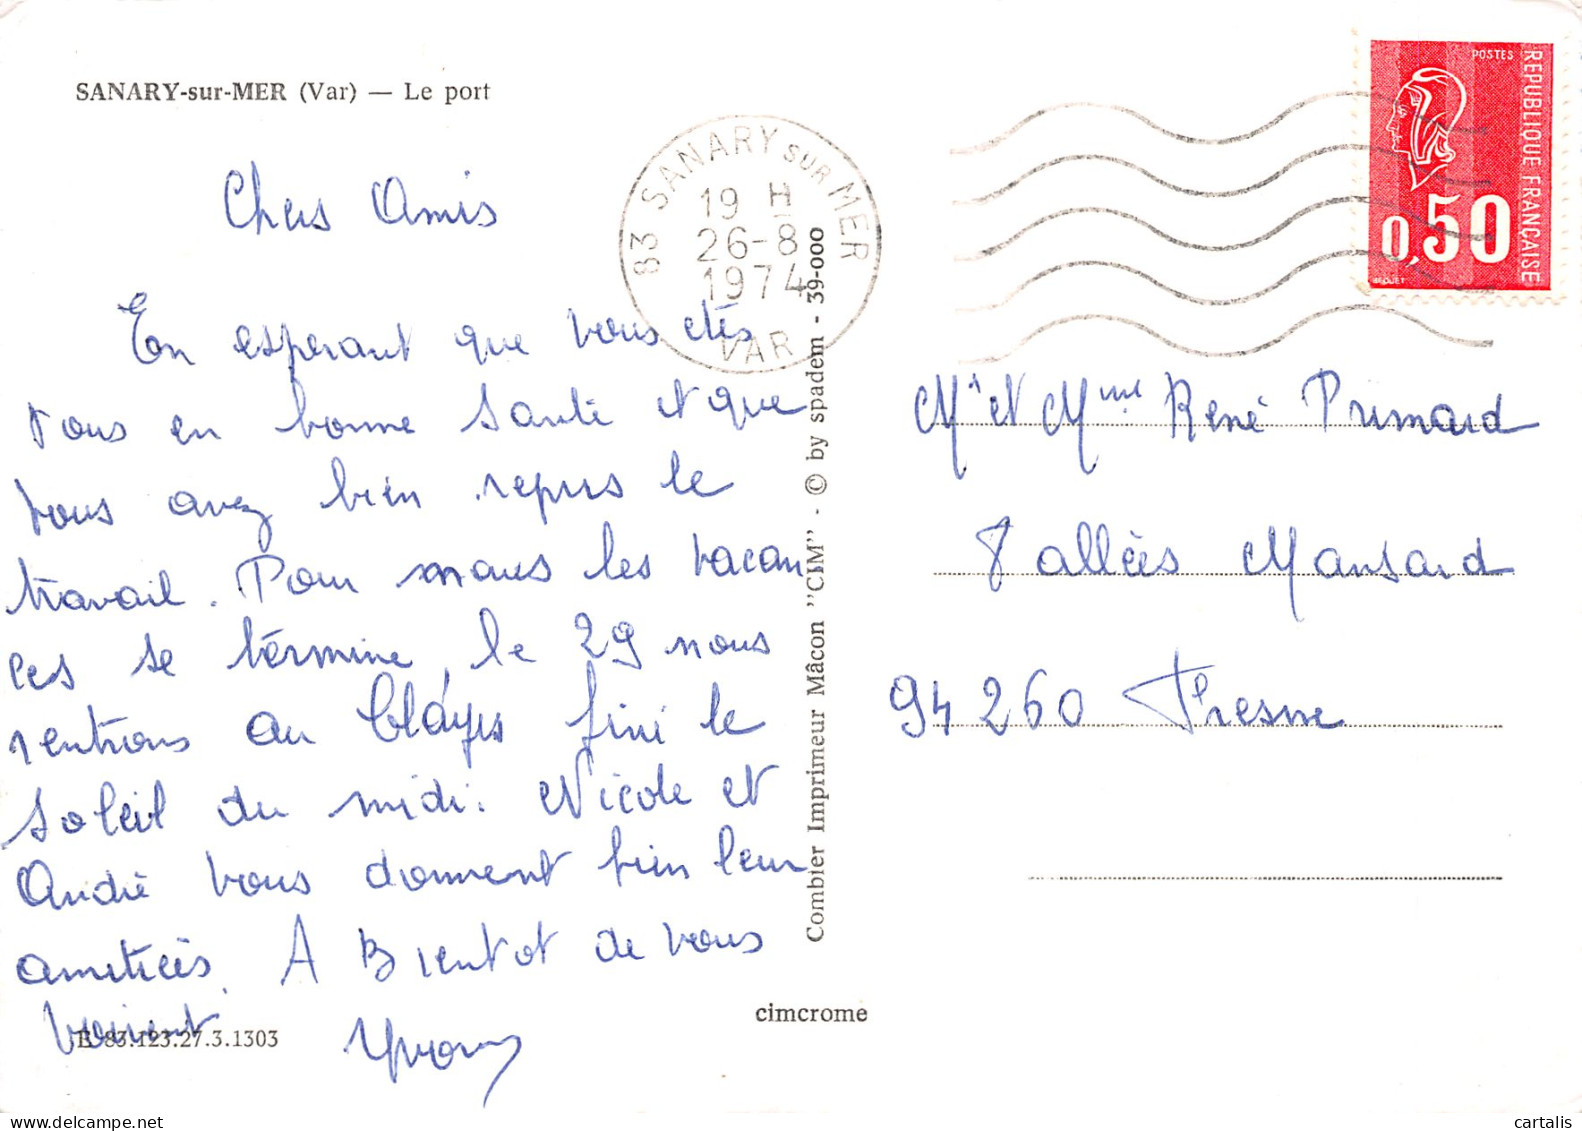 SANARY-sur-MER (Var) — Le port
Chers Amis
En esperant que vous etes
tous en bonne santé et que
vous avez bien repris le
travail. Pour nous les vacan
ces se términe, le 29 nous
rentrons au fini le
soleil du midi. Nicole et
André vous donnent bien leur
amitiées. A Bientot de vous
E 83.123.27.3.1303
Yvon
83 SANARY SUR MER
19 H
26-8
1974
VAR
Combier Imprimeur Mâcon "CIM" - © by spadem - 39-000
cimcrome
POSTES
REPUBLIQUE FRANÇAISE
0,50
BEQUET
Mr et Mme René Primard
8 allées Mansard
94260 Fresne
cartalis